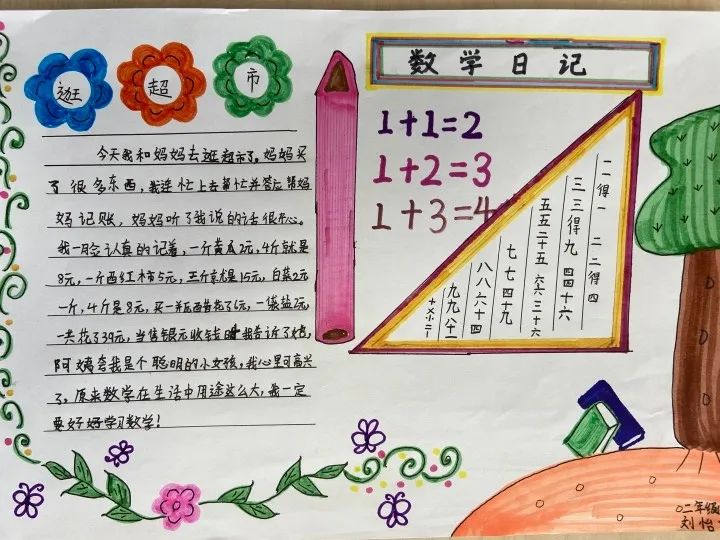 逛超市
今天我和妈妈去逛超市了。妈妈买
了很多东西，我连忙上去帮忙并答应帮妈
妈记账，妈妈听了我说的话很开心。
我一边认真的记着，一斤黄瓜2元，4斤就是
8元，一个西红柿5元，三斤就是15元，白菜2元
一斤，4斤是8元，买一并瓜西花了6元，一袋盐2元，
一共花了39元，当售银元收钱时我告诉了她，
阿姨夸我是个聪明的小女孩，我心里可高兴
了，原来数学在生活中用途这么大，我一定
要好好学习数学！
数学日记
1+1=2
1+2=3
1+3=4
二得一 二二得四
三三得九 四四十六
五五二十五 六六三十六
七七四十九
八八六十四
九九八十一
二年级
刘怡